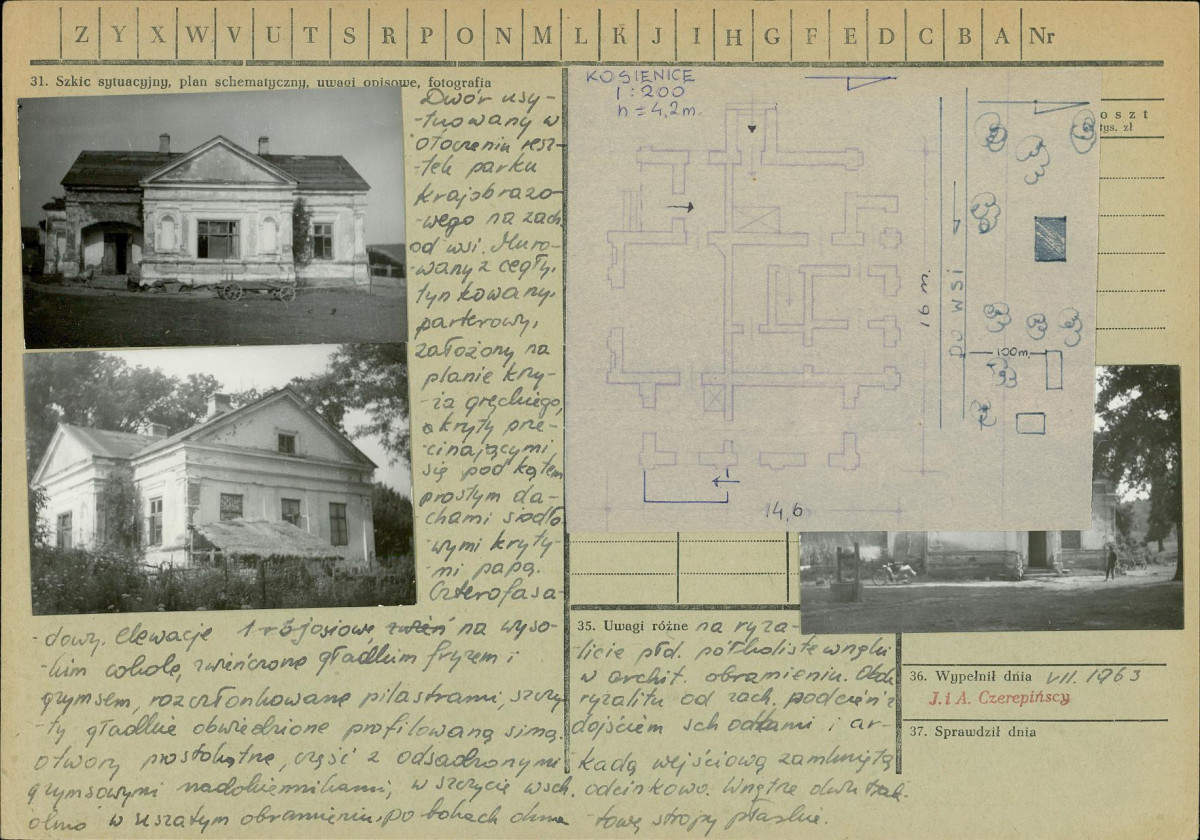 Z Y X W V U T S R P O N M L K J I H G F E D C B A Nr
31. Szkic sytuacyjny, plan schematyczny, uwagi opisowe, fotografia
Dwór usy-
-tuowany w
otoczeniu resz-
-tek parku
krajobrazo-
-wego na zach
od wsi. Muro-
-wany z cegły,
tynkowany,
parterowy,
założony na
planie krzy-
-ża greckiego,
okryty prze-
-cinającymi
się pod kątem
prostym da-
-chami siodło
-wymi kryty-
-mi papą.
Czterofasa-
-dowy. Elewacje 1 i 3-osiowe na wyso-
-kim cokole, zwieńczone gładkim fryzem i
gzymsem, rozczłonkowane pilastrami, szczy-
-ty gładkie obwiedzione profilowaną simą.
Otwory prostokątne, część z odsadzonymi
gzymsowymi nadokiennikami, w szczycie wsch.
okno w uszatym obramieniu. po bokach okna
KOSIENICE
1:200
h = 4,2 m.
16 m.
14,6
DO WSI
100m
oszt
tys. zł
35. Uwagi różne na ryza-
-licie płd. półkoliste wnęki
w archit. obramieniu. Obok
ryzalitu od zach. podcień z
dojściem schodami i ar-
-kadą wejściową zamkniętą
odcinkowo. Wnętrze dwutrak-
-towe stropy płaskie.
36. Wypełnił dnia VII. 1963
J. i A. Czerepińscy
37. Sprawdził dnia